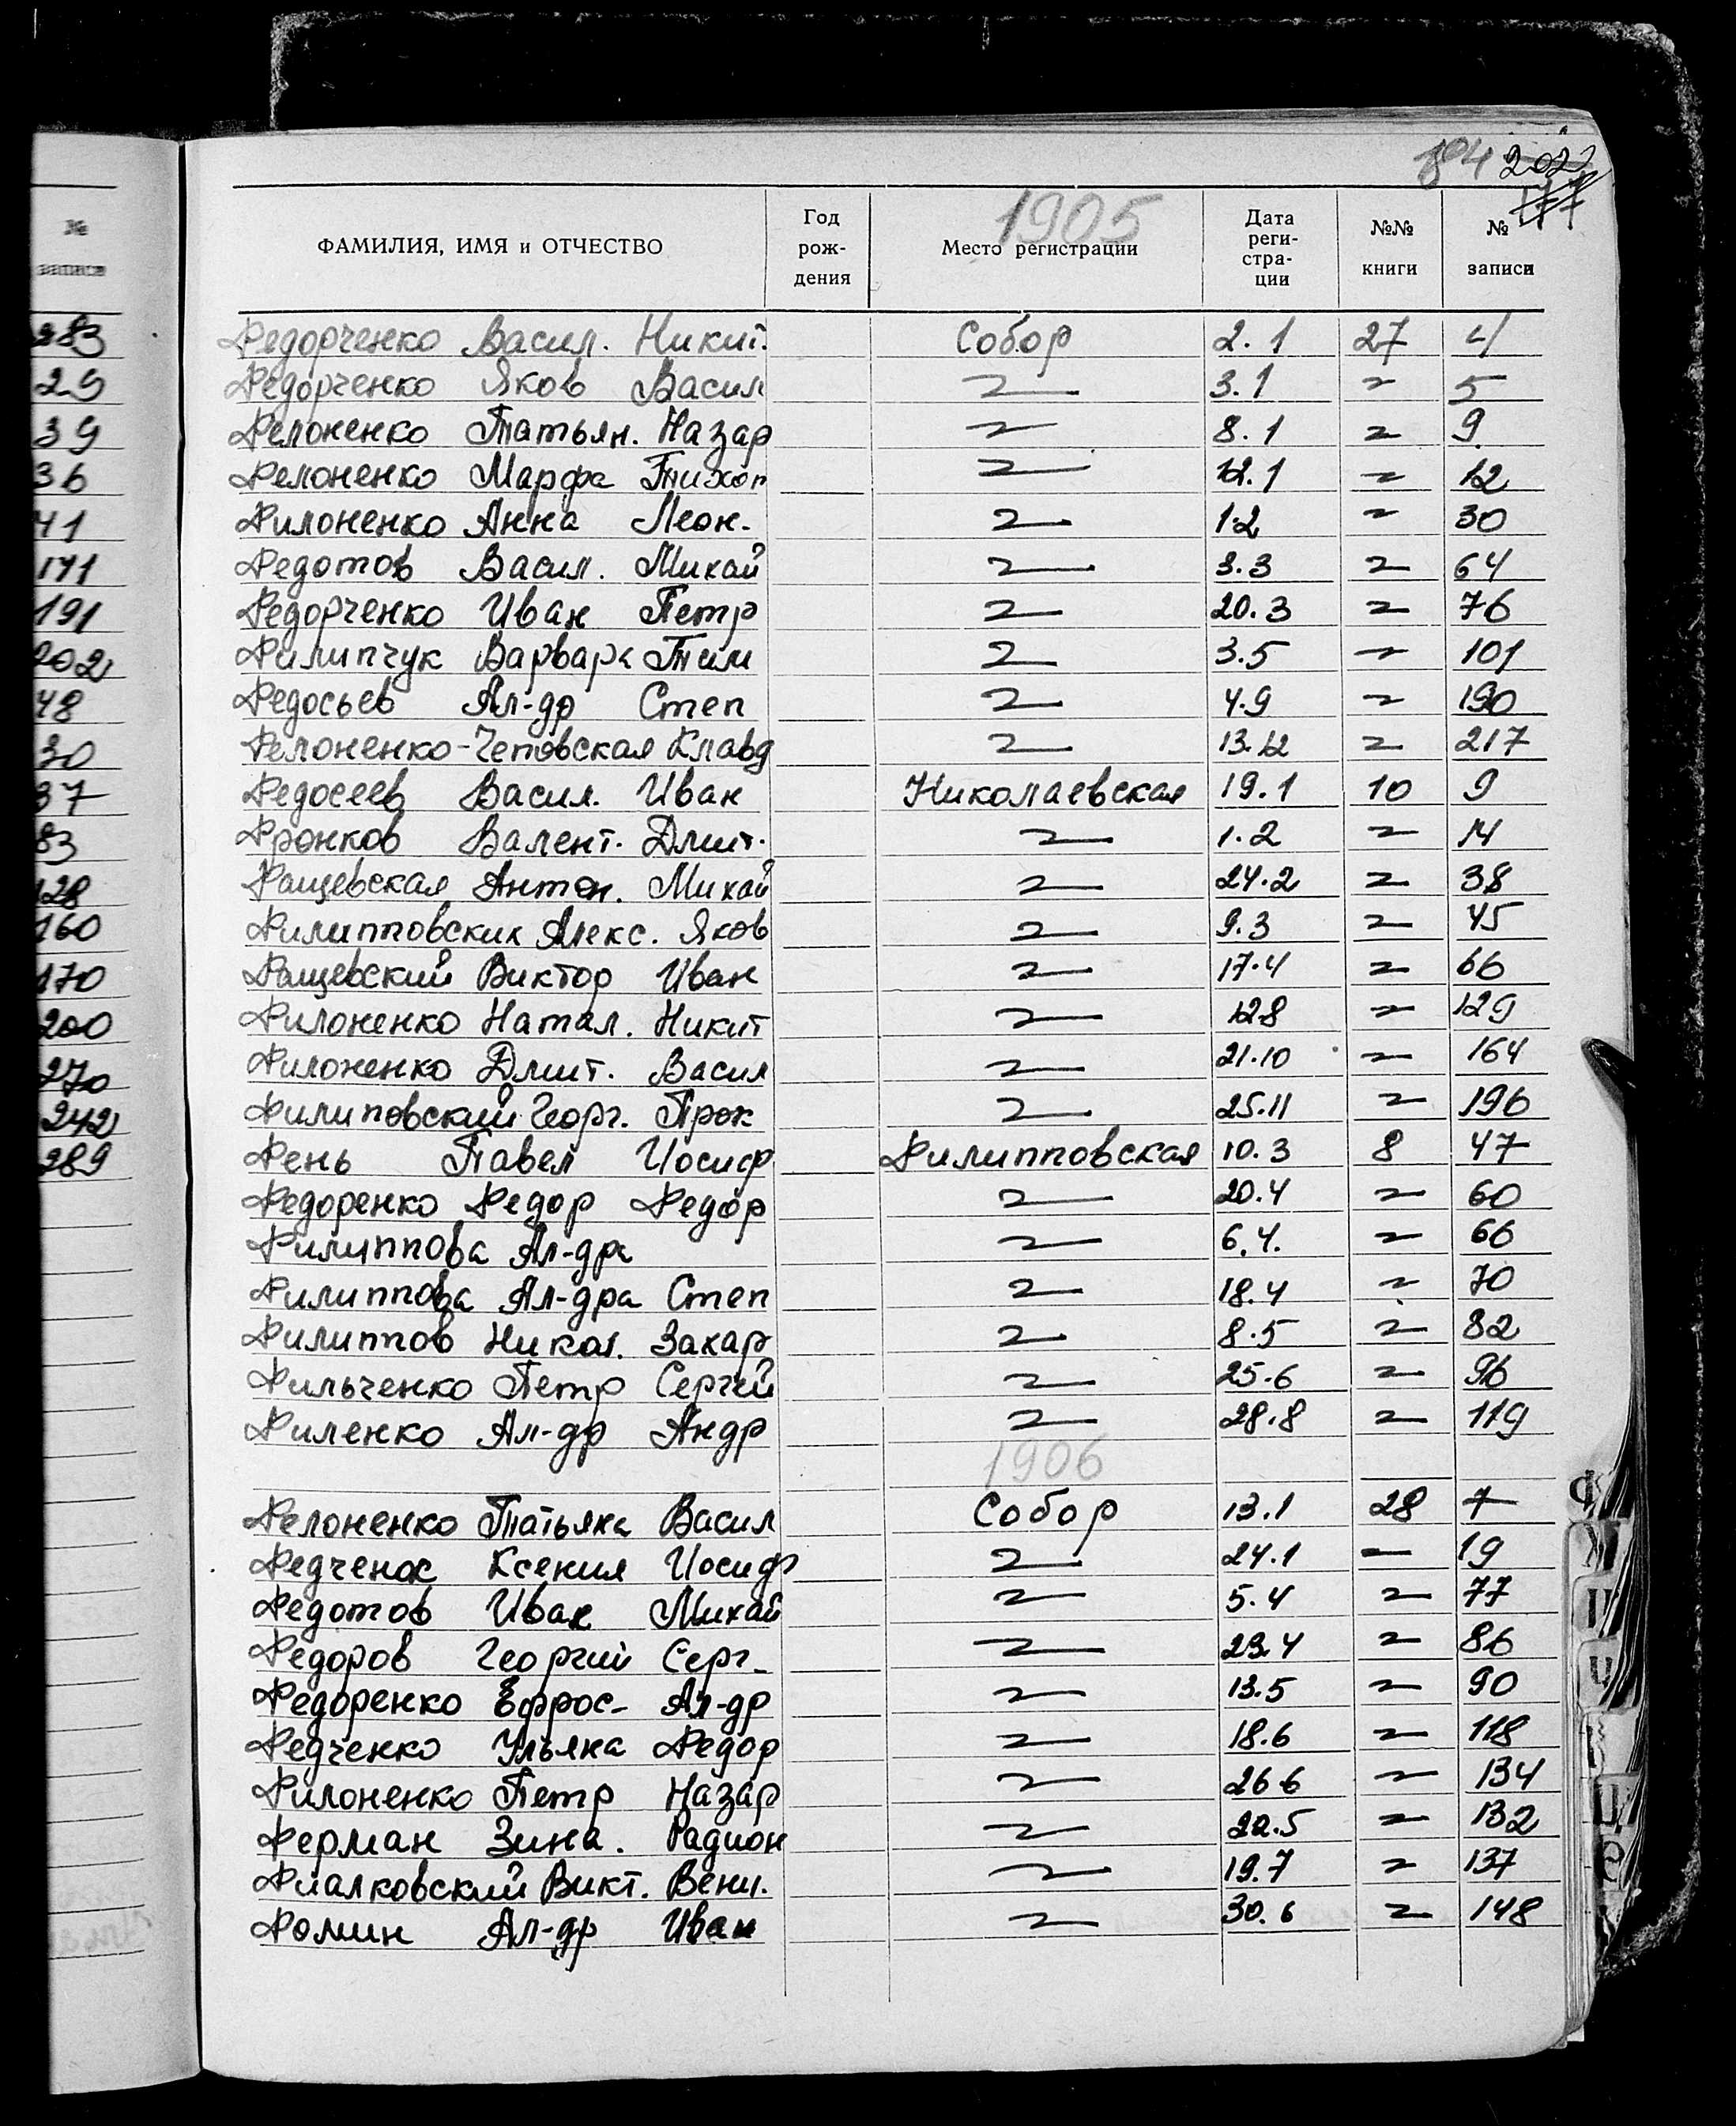 202
№
записи
283
29
39
36
41
171
191
202
48
30
37
83
128
160
170
200
270
242
289
1905
ФАМИЛИЯ, ИМЯ и ОТЧЕСТВО Год рож- дения Место регистрации Дата реги- стра- ции №№ книги № записи
Федорченко Васил. Никит. Собор 2.1 27 4
Федорченко Яков Васил 3.1 5
Фелоненко Татьян. Назар 8.1 9
Фелоненко Марфа Тихон 12.1 12
Филоненко Анна Леон. 1.2 30
Федотов Васил. Михай 3.3 64
Федорченко Иван Петр 20.3 76
Филипчук Варвара Тим 3.5 101
Федосьев Ал-др Степ 4.9 190
Фелоненко-Чеповская Клавд 13.12 217
Федосеев Васил. Иван Николаевская 19.1 10 9
Фронков Валент. Дмит. 1.2 14
Фащевская Антон. Михай 24.2 38
Филипповских Алекс. Яков 9.3 45
Фащевский Виктор Иван 17.4 66
Филоненко Натал. Никит 12.8 129
Филоненко Дмит. Васил 21.10 164
Филиповский Георг. Прок 25.11 196
Фень Павел Иосиф Филипповская 10.3 8 47
Федоренко Федор Федор 20.4 60
Филиппова Ал-дра 6.4. 66
Филиппова Ал-дра Степ 18.4 70
Филиппов Никол. Захар 8.5 82
Фильченко Петр Сергей 25.6 96
Филенко Ал-др Андр 28.8 119
1906
Фелоненко Татьяна Васил Собор 13.1 28 7
Федченок Ксения Иосиф 24.1 19
Федотов Иван Михай 5.4 77
Федоров Георгий Серг- 23.4 86
Федоренко Ефрос- Ал-др 13.5 90
Федченко Ульяна Федор 18.6 118
Филоненко Петр Назар 26 6 134
Ферман Зина. Радион 22.5 132
Фиалковский Викт. Венц. 19.7 137
Фомин Ал-др Иван 30.6 148